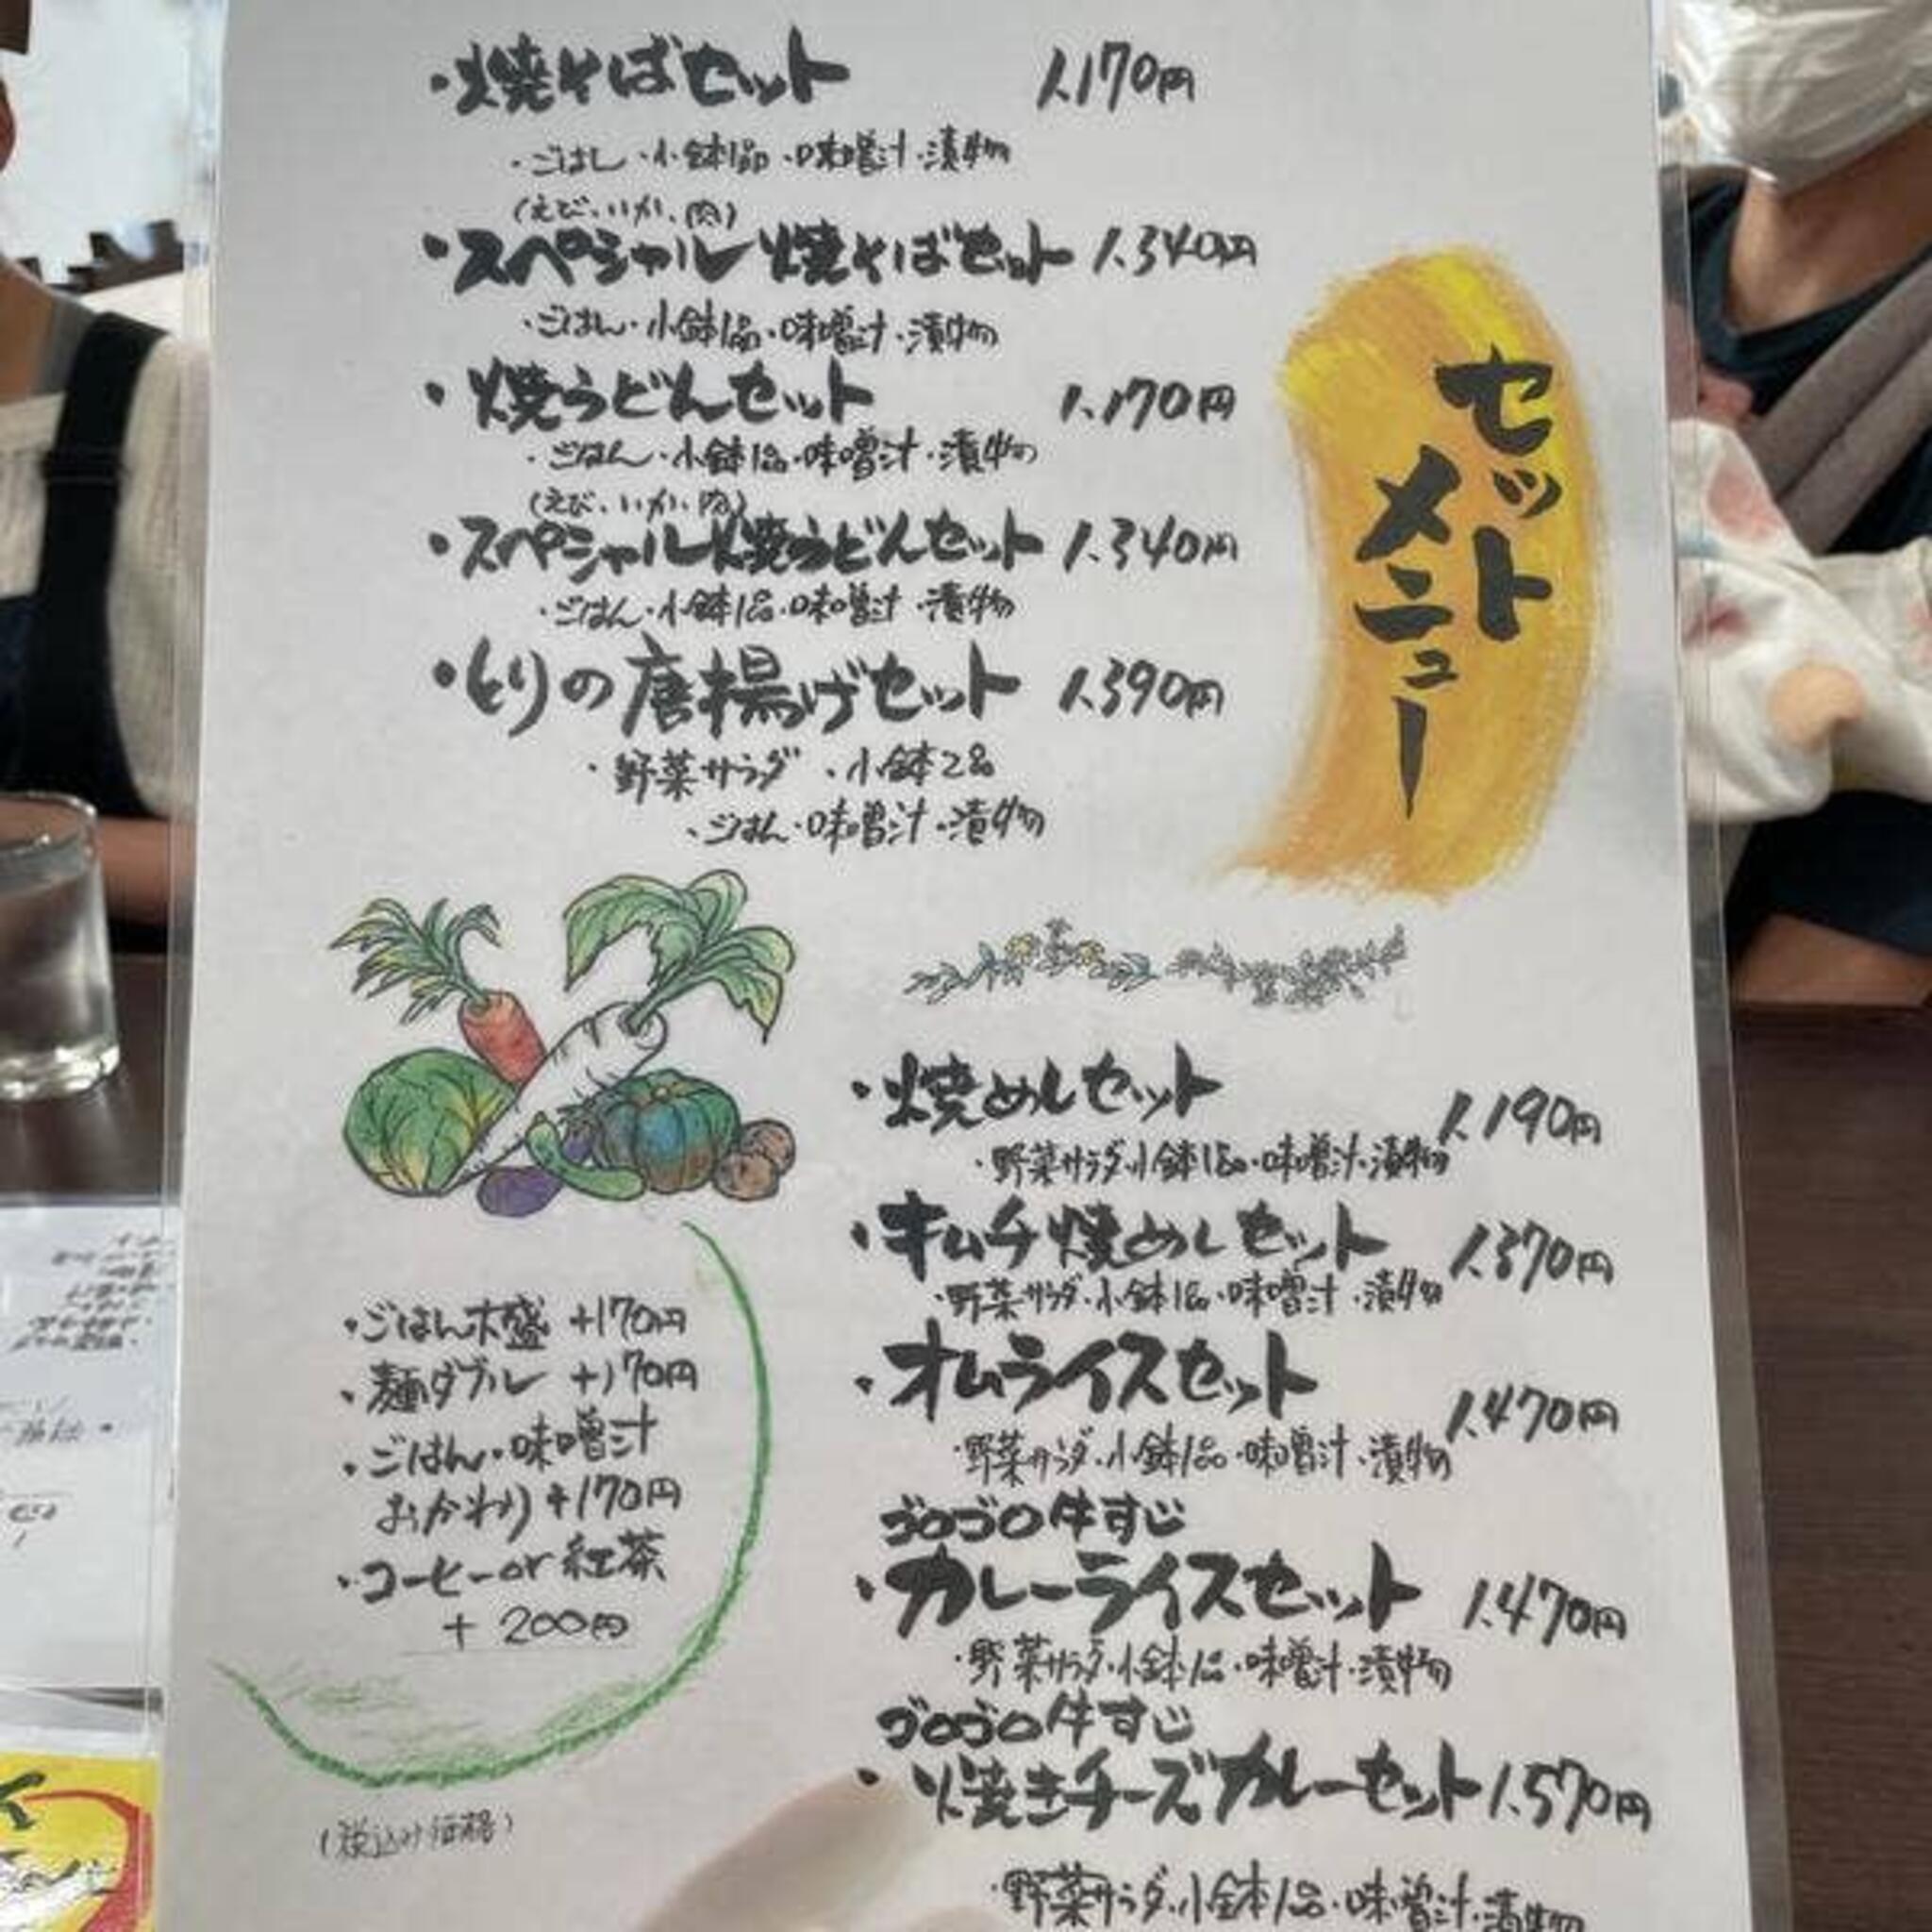 セット
メニュー
・焼そばセット 1.170円
・ごはん・小鉢1品・味噌汁・漬物
(えび、いか、肉)
・スペシャル焼そばセット 1.340円
・ごはん・小鉢1品・味噌汁・漬物
・焼うどんセット 1.170円
・ごはん・小鉢1品・味噌汁・漬物
(えび、いか、肉)
・スペシャル焼うどんセット 1.340円
・ごはん・小鉢1品・味噌汁・漬物
・とりの唐揚げセット 1.390円
・野菜サラダ・小鉢2品
・ごはん・味噌汁・漬物
・焼めしセット 1.190円
・野菜サラダ・小鉢1品・味噌汁・漬物
・キムチ焼めしセット 1.370円
・野菜サラダ・小鉢1品・味噌汁・漬物
・オムライスセット 1.470円
・野菜サラダ・小鉢1品・味噌汁・漬物
ゴロゴロ牛すじ
・カレーライスセット 1.470円
・野菜サラダ・小鉢1品・味噌汁・漬物
ゴロゴロ牛すじ
・焼きチーズカレーセット 1.570円
・野菜サラダ・小鉢1品・味噌汁・漬物
・ごはん大盛 +170円
・麺ダブル +170円
・ごはん・味噌汁
おかわり +170円
・コーヒーor紅茶
+ 200円
(税込み価格)